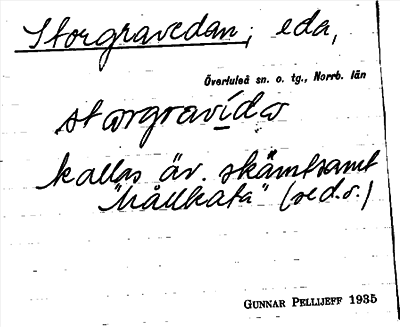 Storgravedan, eda,
Överluleå sn. o. tg., Norrb. län
storgravída
kallas äv. skämtsamt
"hållkata" (se d.o.)
GUNNAR PELLIJEFF 1935